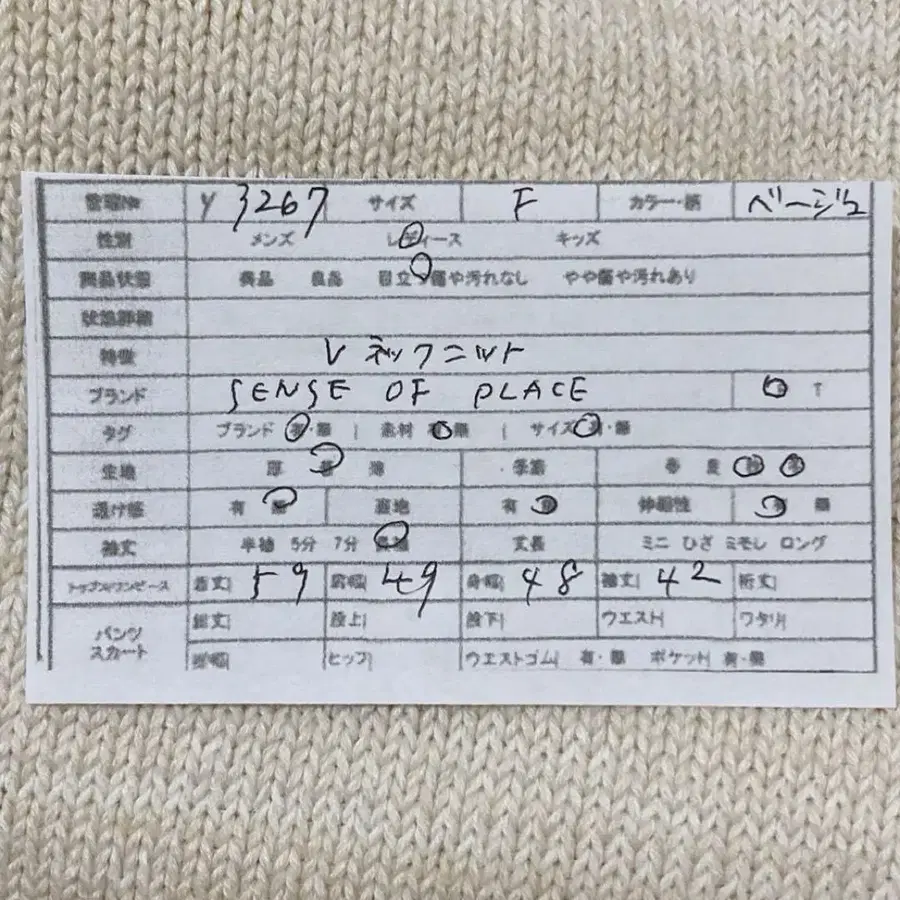 管理№ y 3267 サイズ F カラー・柄 ベージュ
性別 メンズ レディース キッズ
商品状態 美品 良品 目立つ傷や汚れなし やや傷や汚れあり
状態詳細
特徴 Vネックニット
ブランド SENSE OF PLACE T
タグ ブランド 有・無 | 素材 有・無 | サイズ 有・無
生地 厚 普 薄 季節 春 夏 秋 冬
透け感 有 無 裏地 有 無 伸縮性 有 無
袖丈 半袖 5分 7分 長袖 丈長 ミニ ひざ ミモレ ロング
トップス/ワンピース 着丈| 59 肩幅| 49 身幅| 48 袖丈| 42 裄丈|
パンツ スカート 総丈| 股上| 股下| ウエスト| ワタリ|
裾幅| ヒップ| ウエストゴム| 有・無 ポケット| 有・無